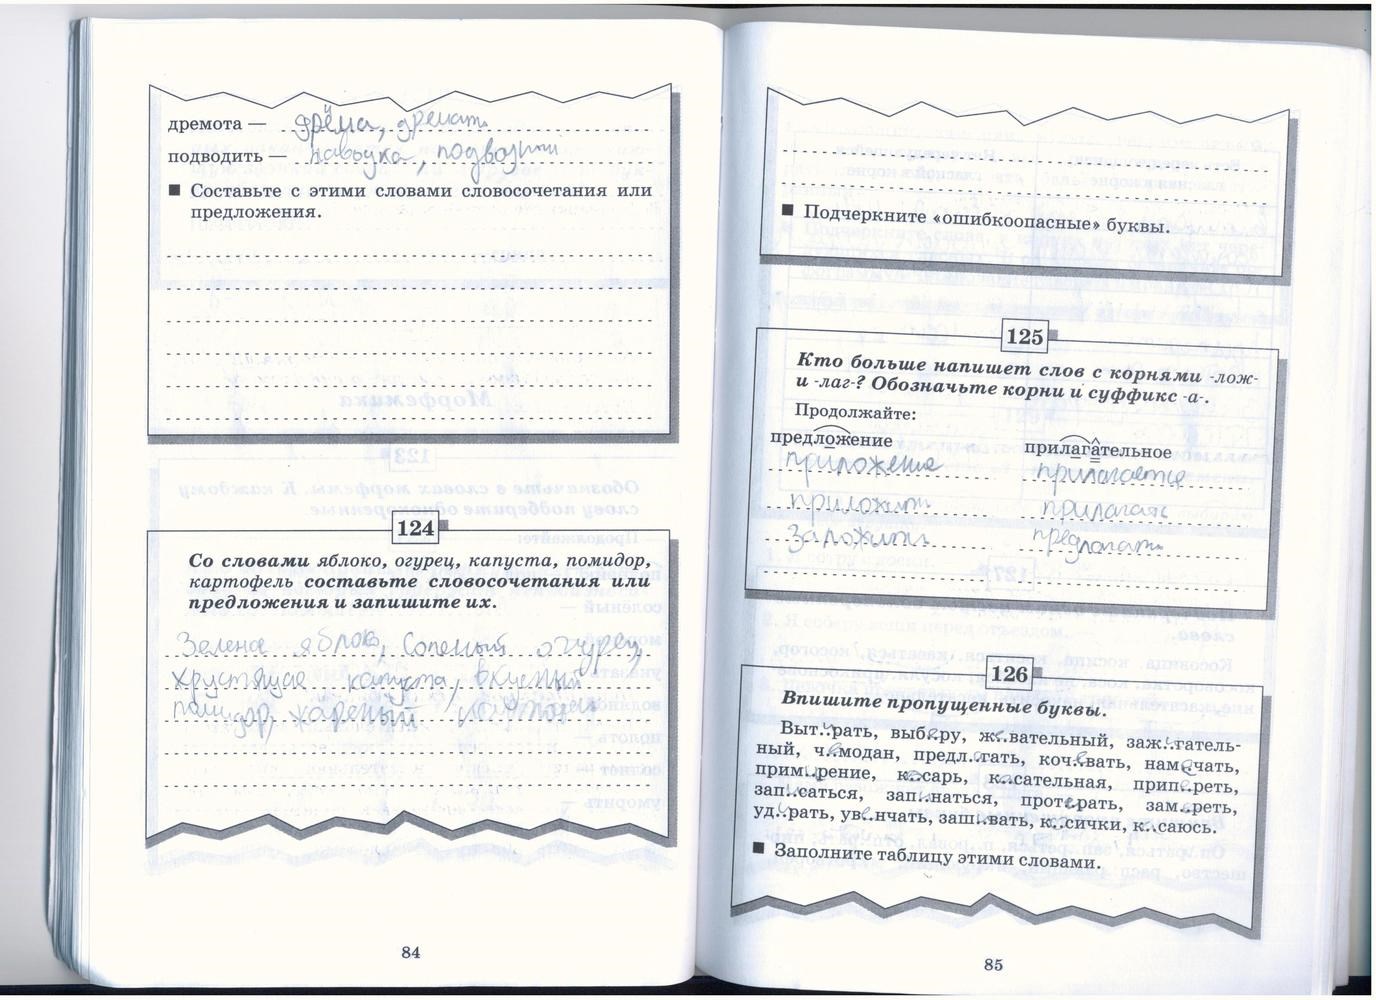 дремота — дрёма, дремать
подводить —
■ Составьте с этими словами словосочетания или
предложения.
124
Со словами яблоко, огурец, капуста, помидор,
картофель составьте словосочетания или
предложения и запишите их.
Зеленое яблоко, Соленый огурец,
хрустящая капуста, вкусный
помидор, жареный
84
■ Подчеркните «ошибкоопасные» буквы.
125
Кто больше напишет слов с корнями -лож-
и -лаг-? Обозначьте корни и суффикс -а-.
Продолжайте:
предложение прилагательное
приложение прилагается
приложить прилагать
Заложить предлагать
126
Впишите пропущенные буквы.
Выт..рать, выб..ру, ж..вательный, заж..гатель-
ный, ч..модан, предл..гать, коч..вать, нам..чать,
прим..рение, к..сарь, к..сательная, прип..реть,
зап..саться, зап..наться, прот..рать, зам..реть,
уд..рать, ув..нчать, заш..вать, к..сички, к..саюсь.
■ Заполните таблицу этими словами.
85